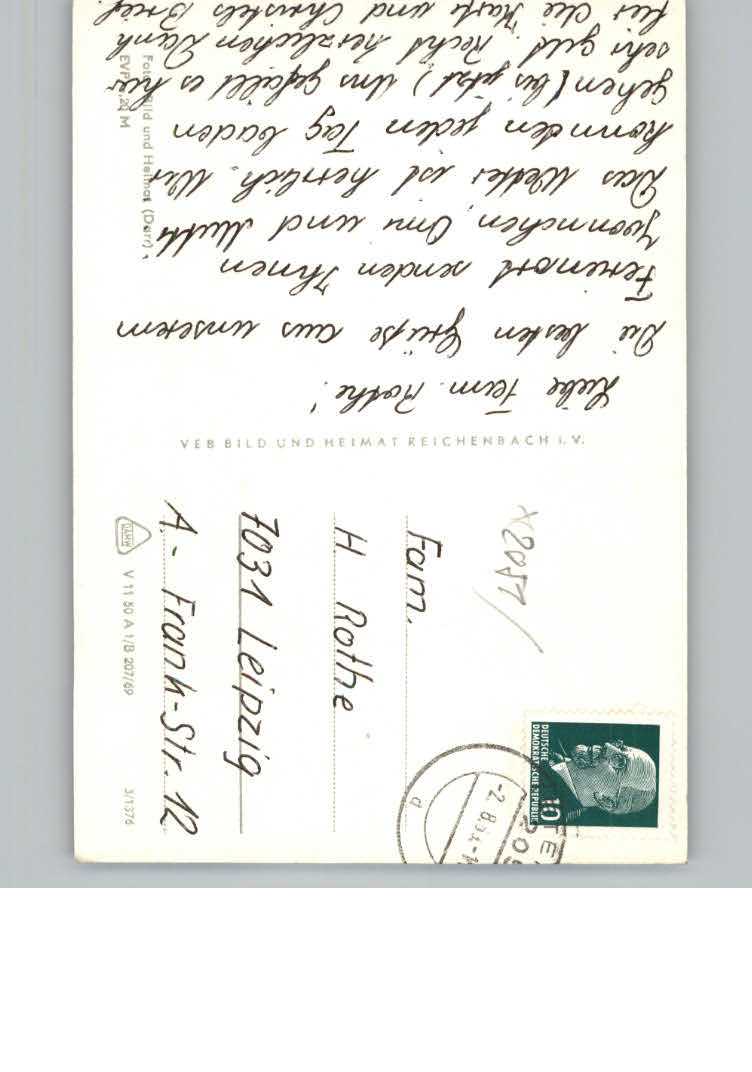 Liebe Fam. Rothe!
Die besten Grüße aus unserem
Ferienort senden Ihnen
Yvonnchen, Omi und Mutti
Das Wetter ist herrlich. Wir
konnten jeden Tag baden
gehen (bis jetzt) Uns gefällt es hier
sehr gut. Recht herzlichen Dank
für die Karte und Christels Brief.
Foto: Bild und Heimat (Darr)
EVP 0,20 M
VEB BILD UND HEIMAT REICHENBACH i. V.
DEUTSCHE
DEMOKRATISCHE REPUBLIK
10
-2.8.
d
Fam.
H. Rothe
7031 Leipzig
A.-Frank-Str. 12
V 11 50 A 1/B 207/69
3/1376